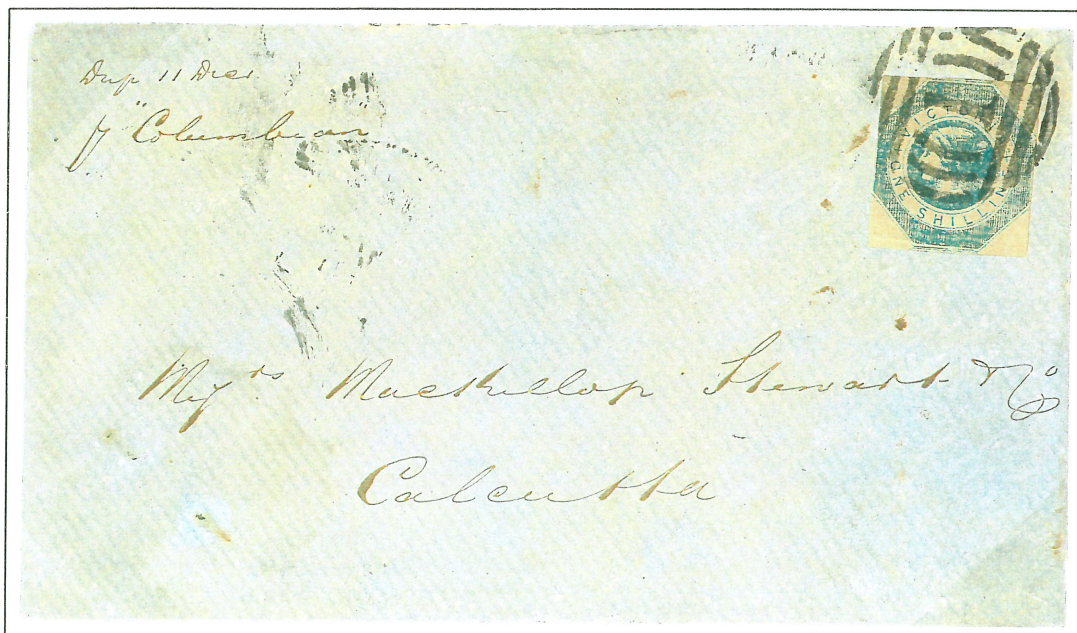 Dup 11 Decr
p "Columbian"
VICTORIA
ONE SHILLING
Messrs Mackillop Stewart & Co
Calcutta